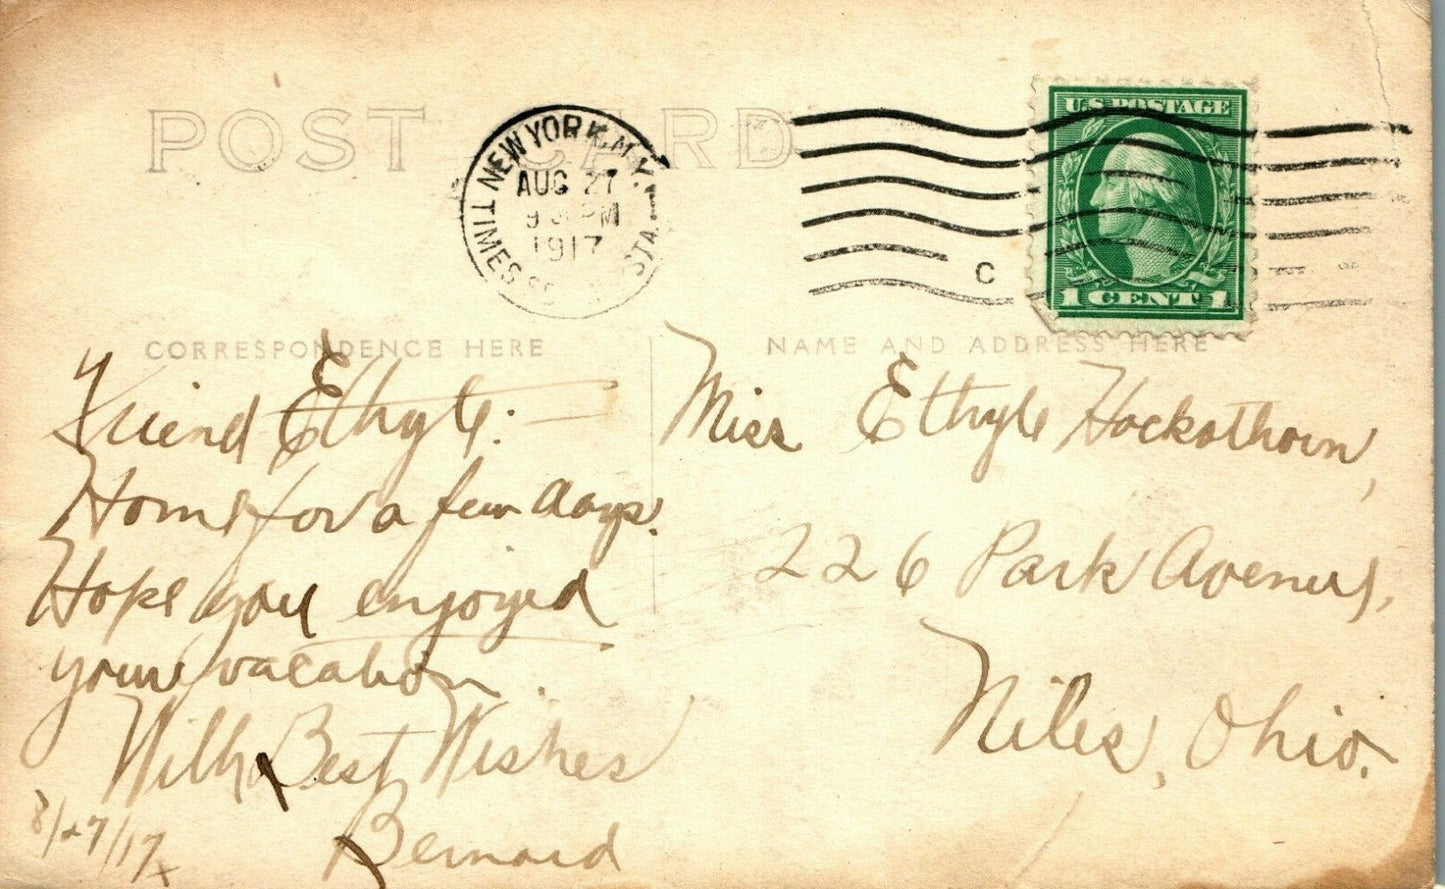 POST CARD
NEW YORK, N.Y.
AUG 27
9 PM
1917
TIMES SQ. STA.
C
U.S. POSTAGE
1 CENT 1
CORRESPONDENCE HERE
NAME AND ADDRESS HERE
Friend Ethyle:—
Home for a few days.
Hope you enjoyed
your vacation.
With Best Wishes
Bernard
8/27/17
Miss Ethyle Hockathorn,
226 Park Avenue,
Niles, Ohio.